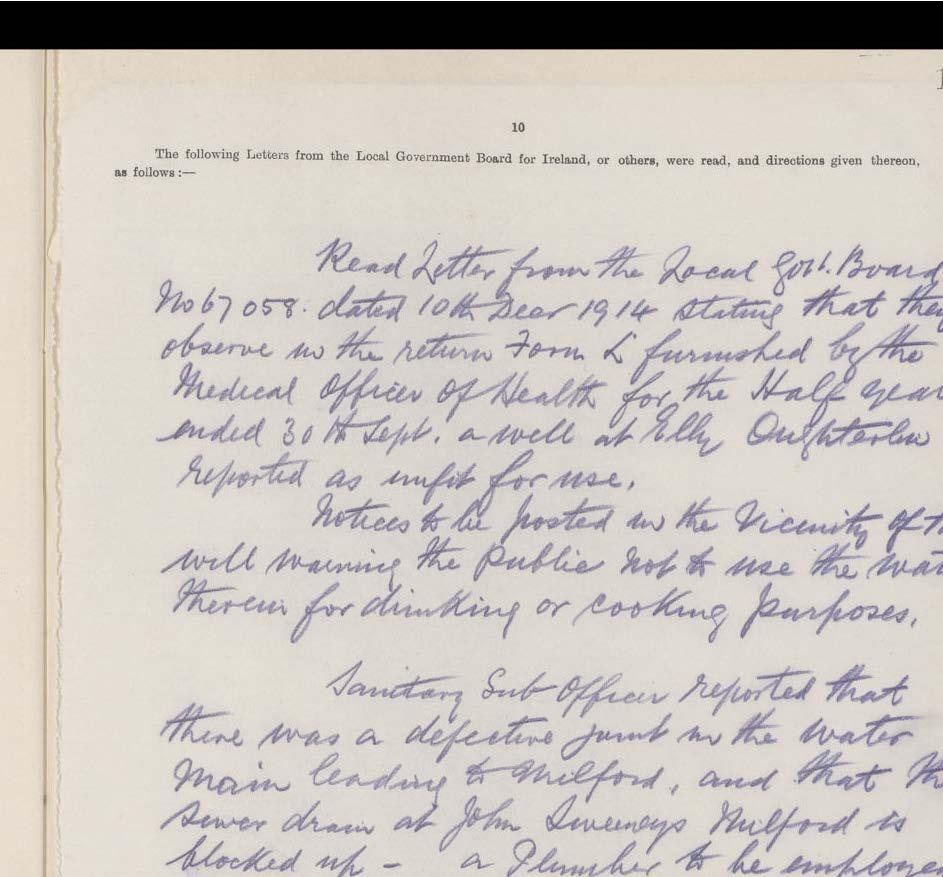 10
The following Letters from the Local Government Board for Ireland, or others, were read, and directions given thereon,
as follows :—
Read Letter from the Local Govt. Board
No 67058. dated 10th Decr 1914 stating that they
observe in the return Form L furnished by the
Medical Officer of Health for the Half year
ended 30th Sept. a well at Elly Oughterlin
reported as unfit for use.
Notices to be posted in the Vicinity of
well warning the public not to use the
therein for drinking or cooking purposes.
Sanitary Sub Officer reported that
there was a defective joint in the water
Main leading to Milford, and that
sewer drain at John Sweeneys Milford is
blocked up – a Plumber to be